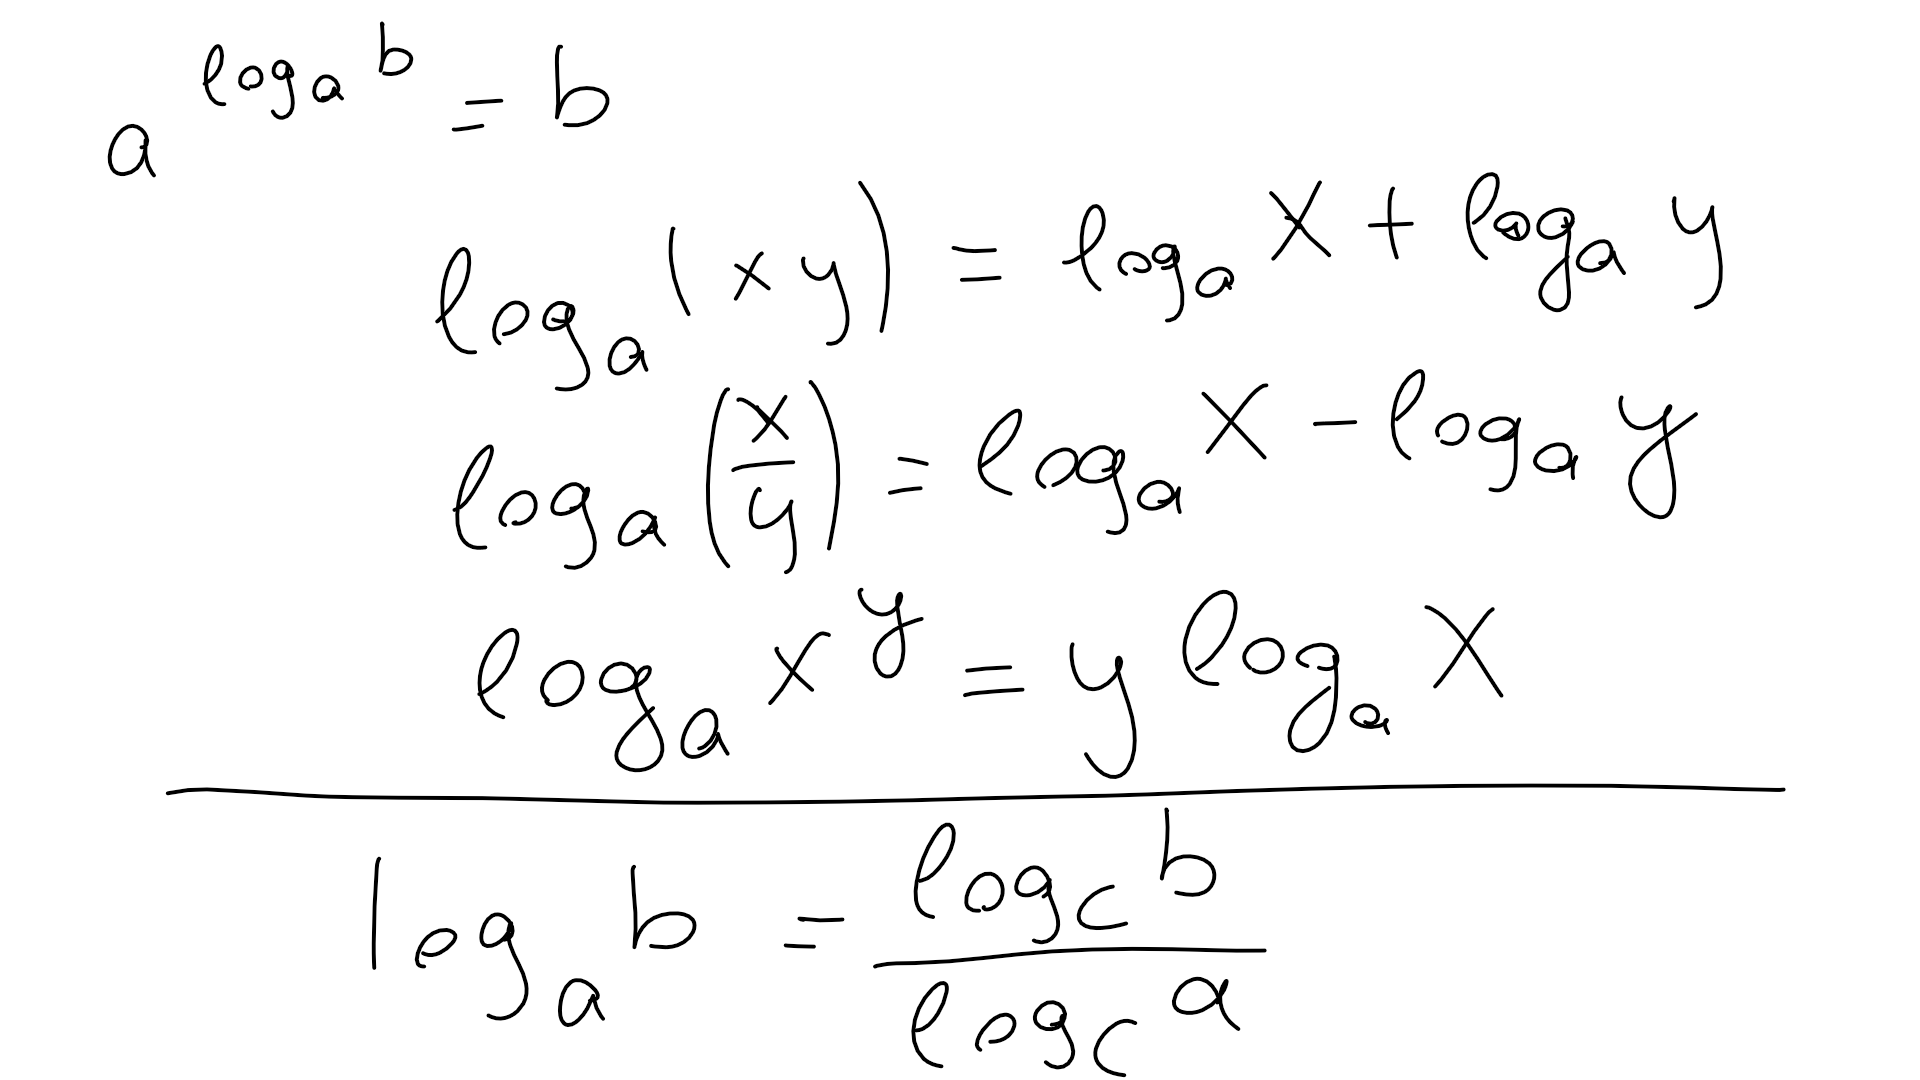 a^{log_a b} = b
log_a (xy) = log_a x + log_a y
log_a (x/y) = log_a x - log_a y
log_a x^y = y log_a x
log_a b = log_c b / log_c a